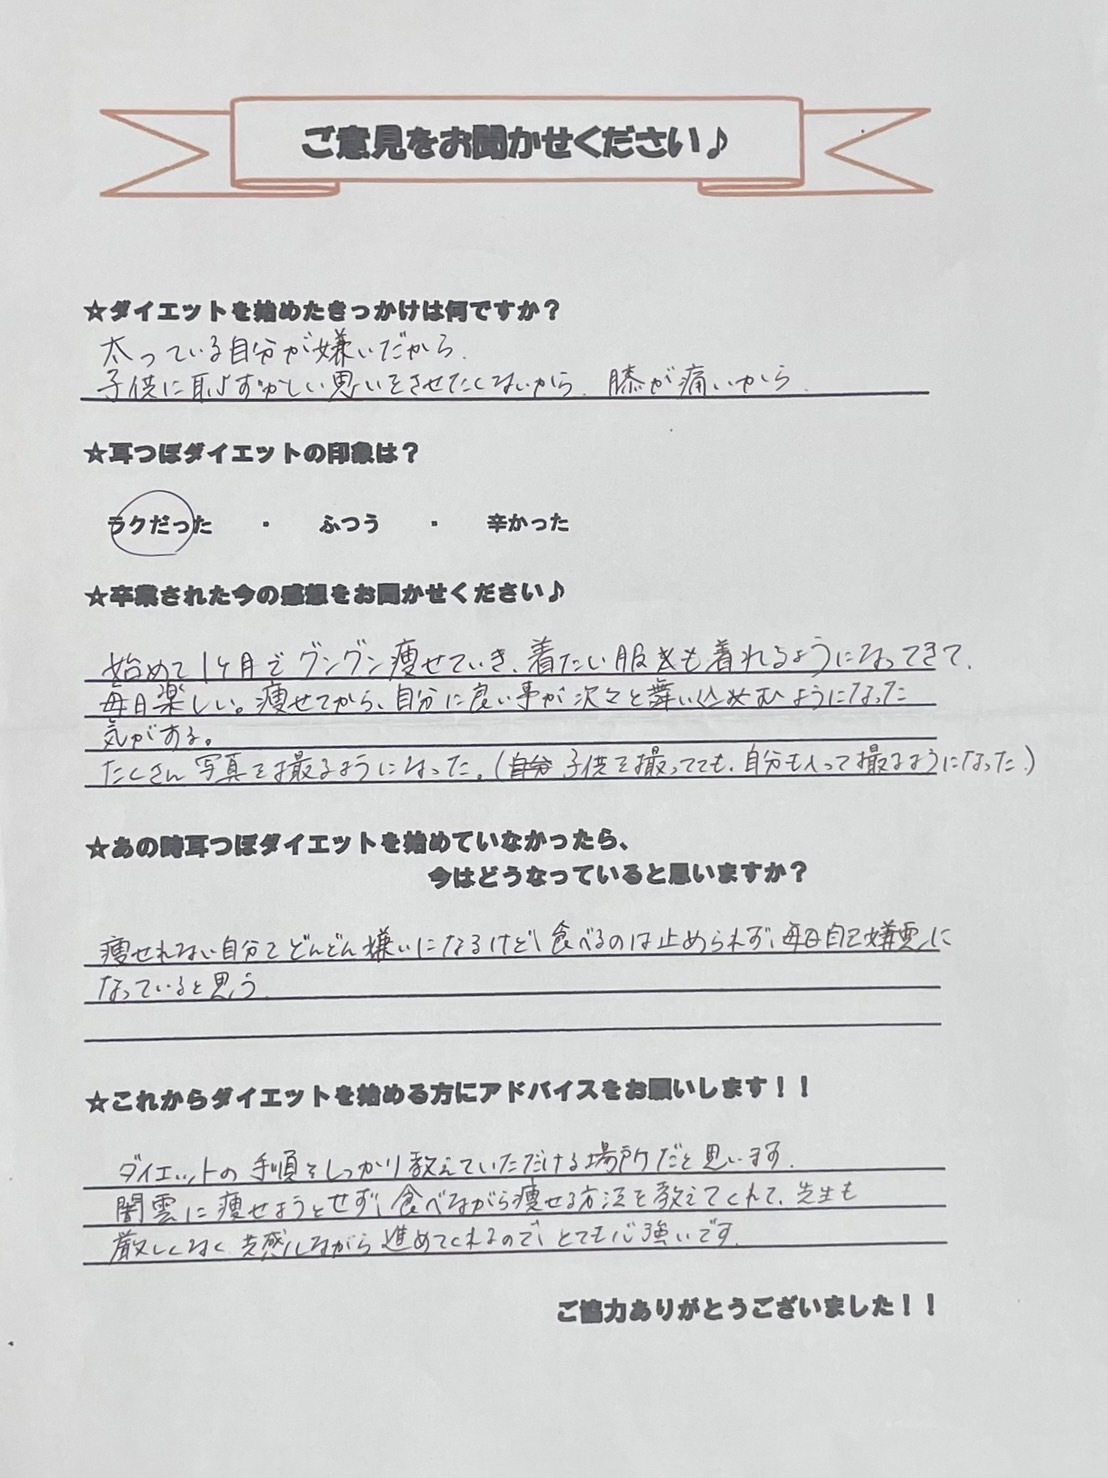 ご意見をお聞かせください♪
☆ダイエットを始めたきっかけは何ですか？
太っている自分が嫌いだから.
子供に恥ずかしい思いをさせたくないから. 膝が痛いから.
☆耳つぼダイエットの印象は？
ラクだった ・ ふつう ・ 辛かった
☆卒業された今の感想をお聞かせください♪
始めて1ヶ月でグングン痩せていき、着たい服も着れるようになってきて、
毎日楽しい。痩せてから、自分に良い事が次々と舞い込むようになった
気がする。
たくさん写真を撮るようになった。(自分 子供を撮ってても、自分も入って撮るようになった.)
☆あの時耳つぼダイエットを始めていなかったら、
今はどうなっていると思いますか？
痩せれない自分をどんどん嫌いになるけど、食べるのは止められず、毎日自己嫌悪に
なっていると思う.
☆これからダイエットを始める方にアドバイスをお願いします！！
ダイエットの手順をしっかり教えていただける場所だと思います.
闇雲に痩せようとせず、食べながら痩せる方法を教えてくれて、先生も
厳しくなく共感しながら進めてくれるので、とても心強いです.
ご協力ありがとうございました！！